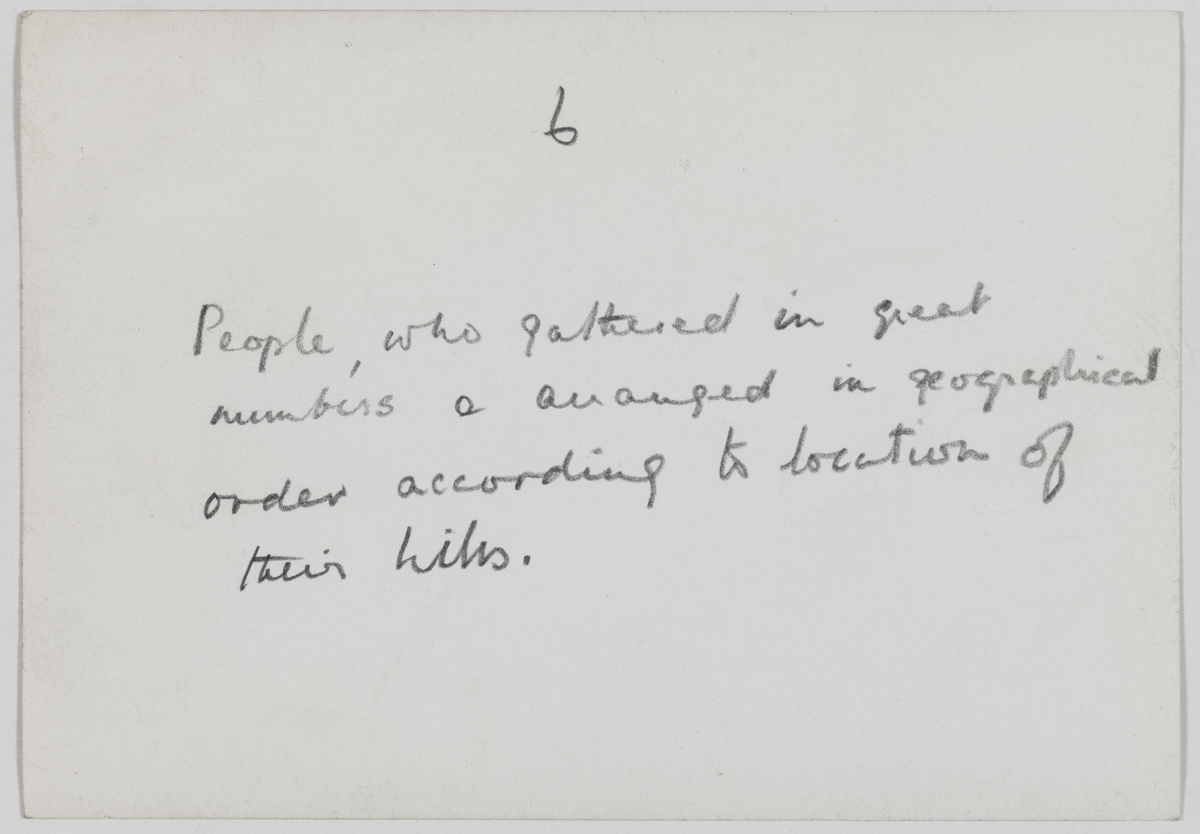 6
People, who gathered in great
numbers & arranged in geographical
order according to location of
their hills.